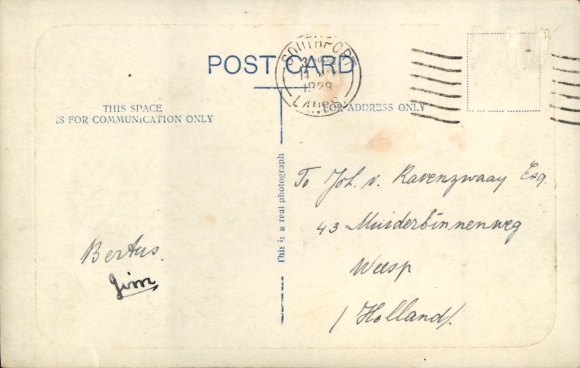 POST CARD
SOUTHPOR
1929
LANCS
THIS SPACE
IS FOR COMMUNICATION ONLY
FOR ADDRESS ONLY
This is a real photograph
To Joh. v. Ravenzwaay Esq.
43 Muiderbinnenweg
Weesp
/Holland/.
Bertus.
Jim